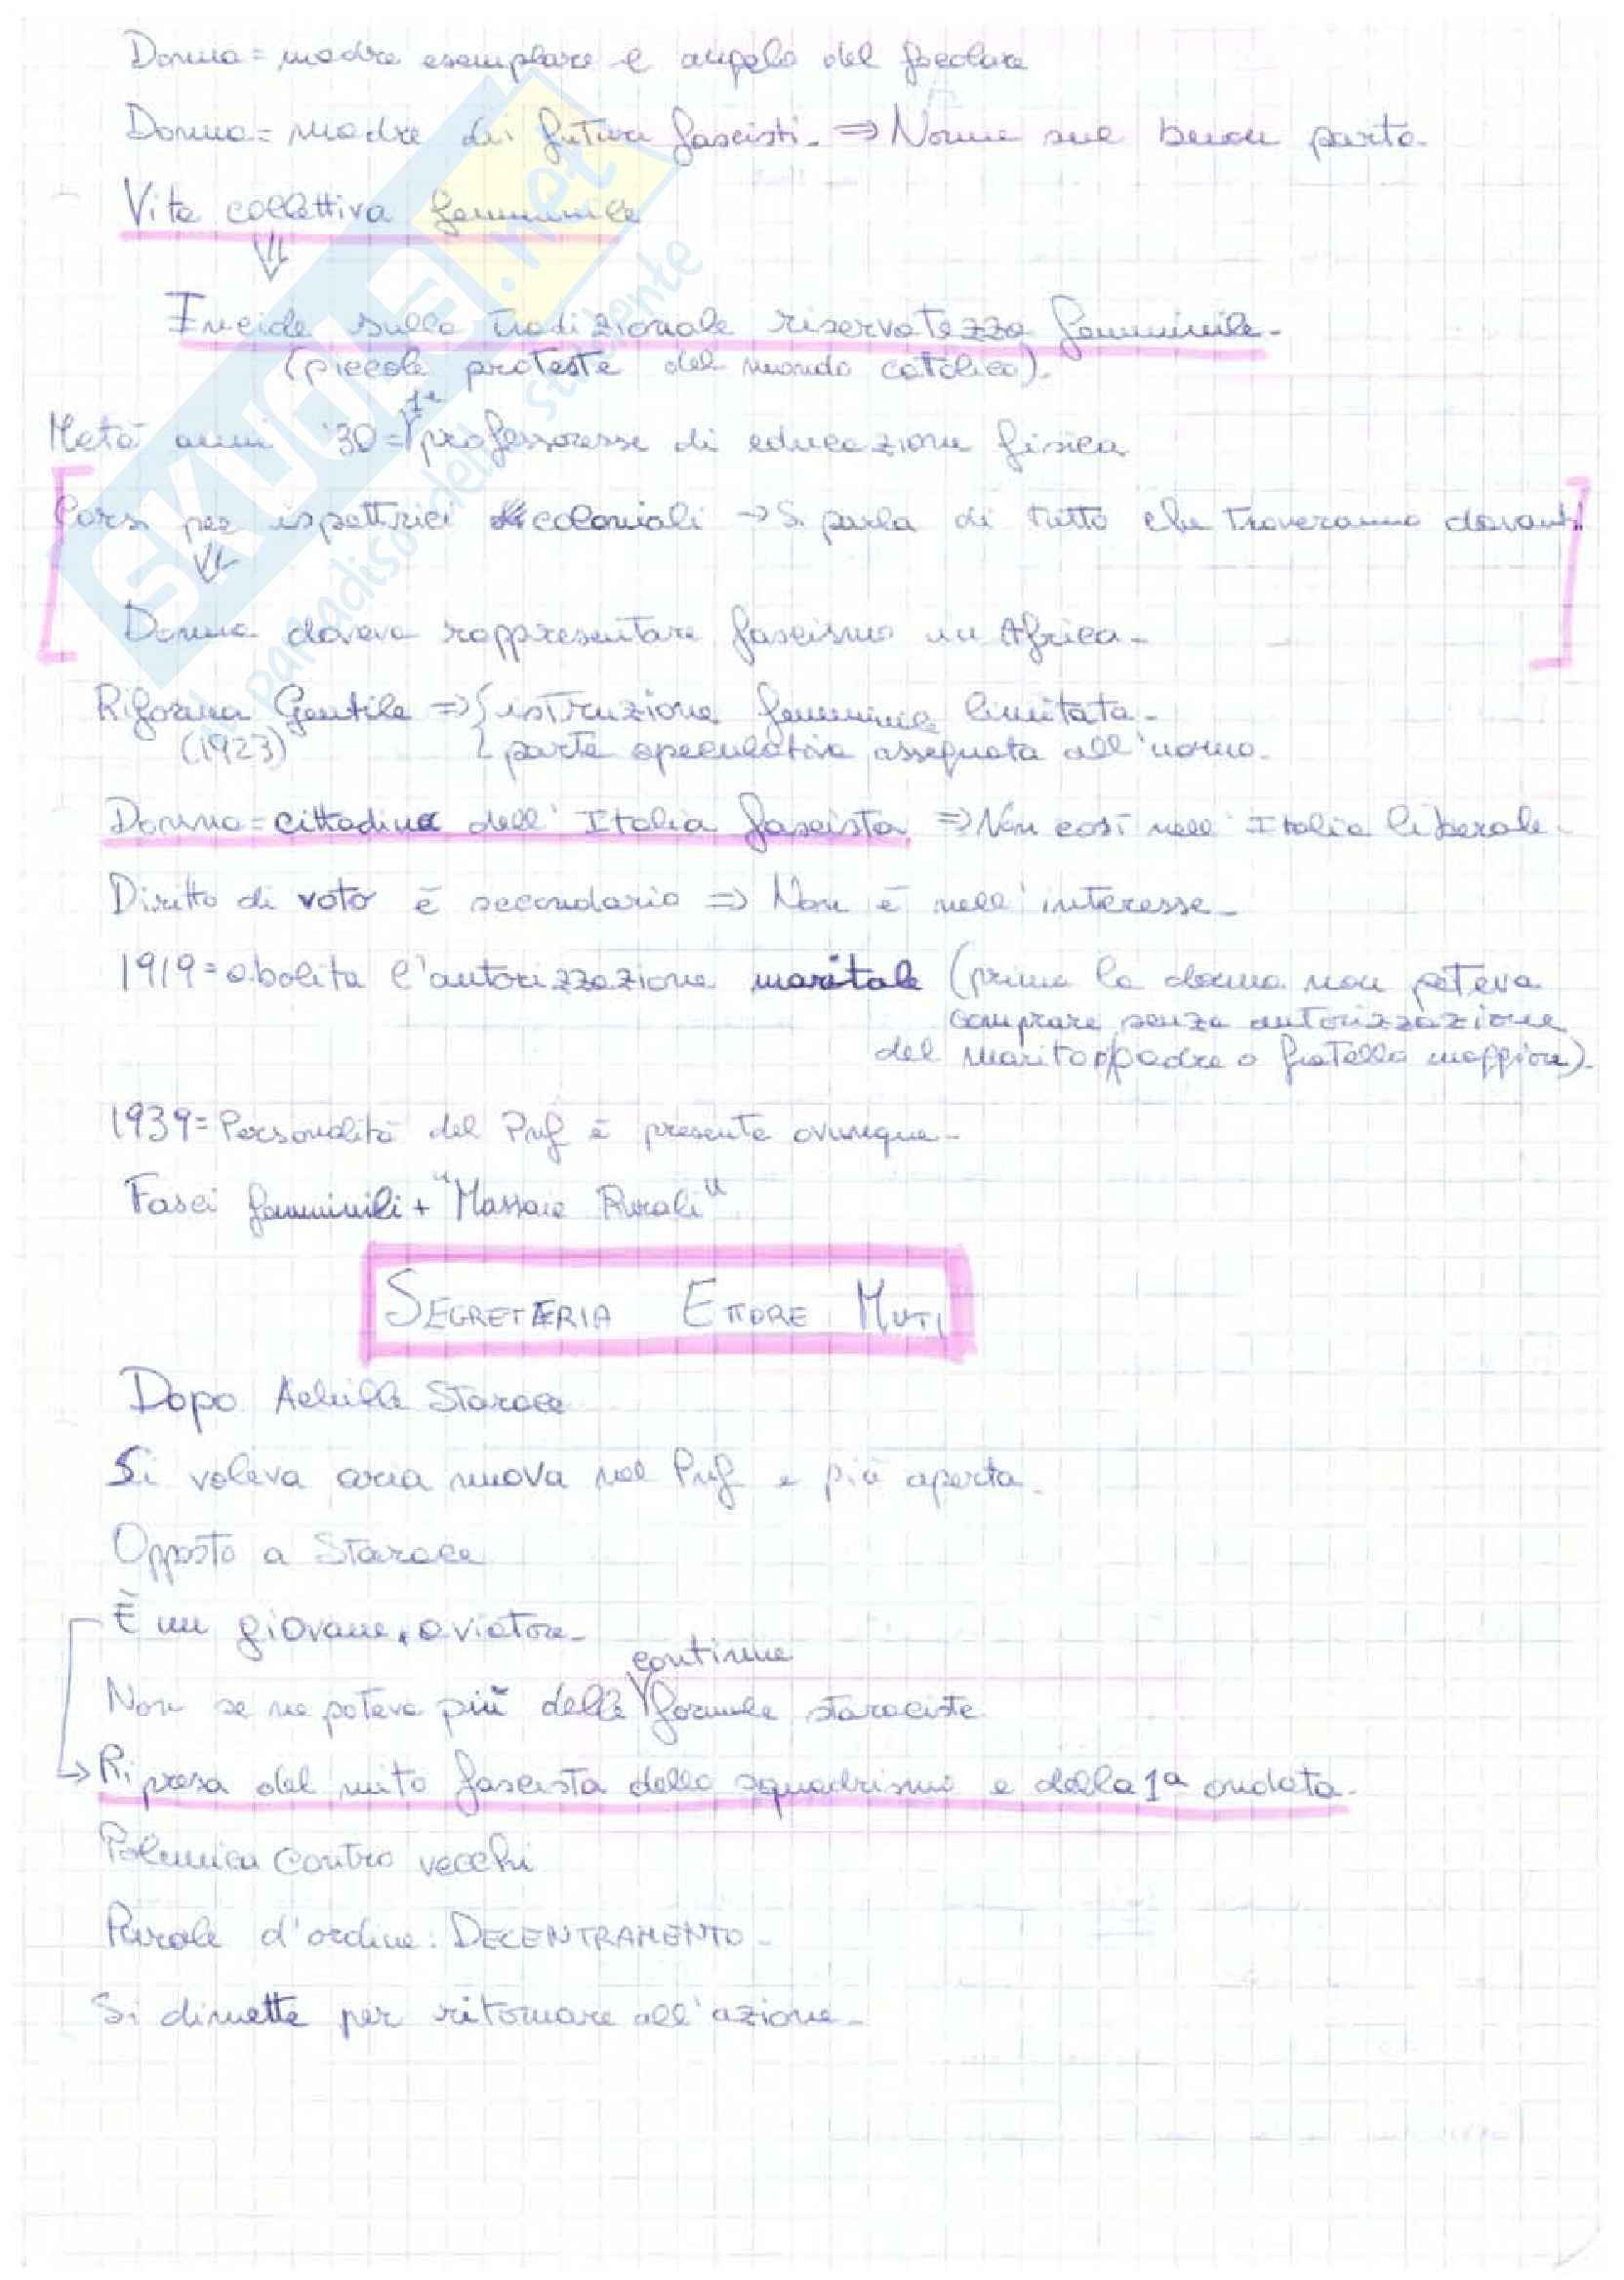 Donna = madre esemplare e angelo del focolare
Donna = madre dei futuri fascisti. ⇒ Norme sul buon parto.
Vita collettiva femminile
⇓
Incide sulla tradizionale riservatezza femminile.
(piccole proteste del mondo cattolico).
Metà anni '30 = 1e professoresse di educazione fisica
Corsi per ispettrici coloniali → Si parla di tutto che troveranno davanti
⇓
Donna doveva rappresentare fascismo in Africa.
Riforma Gentile ⇒ { istruzione femminile limitata.
(1923) { parte speculativa assegnata all'uomo.
Donna = cittadina dell'Italia fascista ⇒ Non così nell'Italia liberale.
Diritto di voto è secondario ⇒ Non è nell'interesse.
1919 = abolita l'autorizzazione maritale (prima la donna non poteva
comprare senza autorizzazione
del marito o padre o fratello maggiore).
1939 = Personalità del Pnf è presente ovunque.
Fasci femminili + "Massaie Rurali"
SEGRETERIA ETTORE MUTI
Dopo Achille Starace
Si voleva aria nuova nel Pnf e più aperta.
Opposto a Starace
È un giovane, aviatore.
continue
Non se ne poteva più delle formule staraciste
→ Ripresa del mito fascista dello squadrismo e della 1ª ondata.
Polemica contro vecchi
Parole d'ordine: DECENTRAMENTO.
Si dimette per ritornare all'azione.
SKUOLA.net
il paradiso dello studente